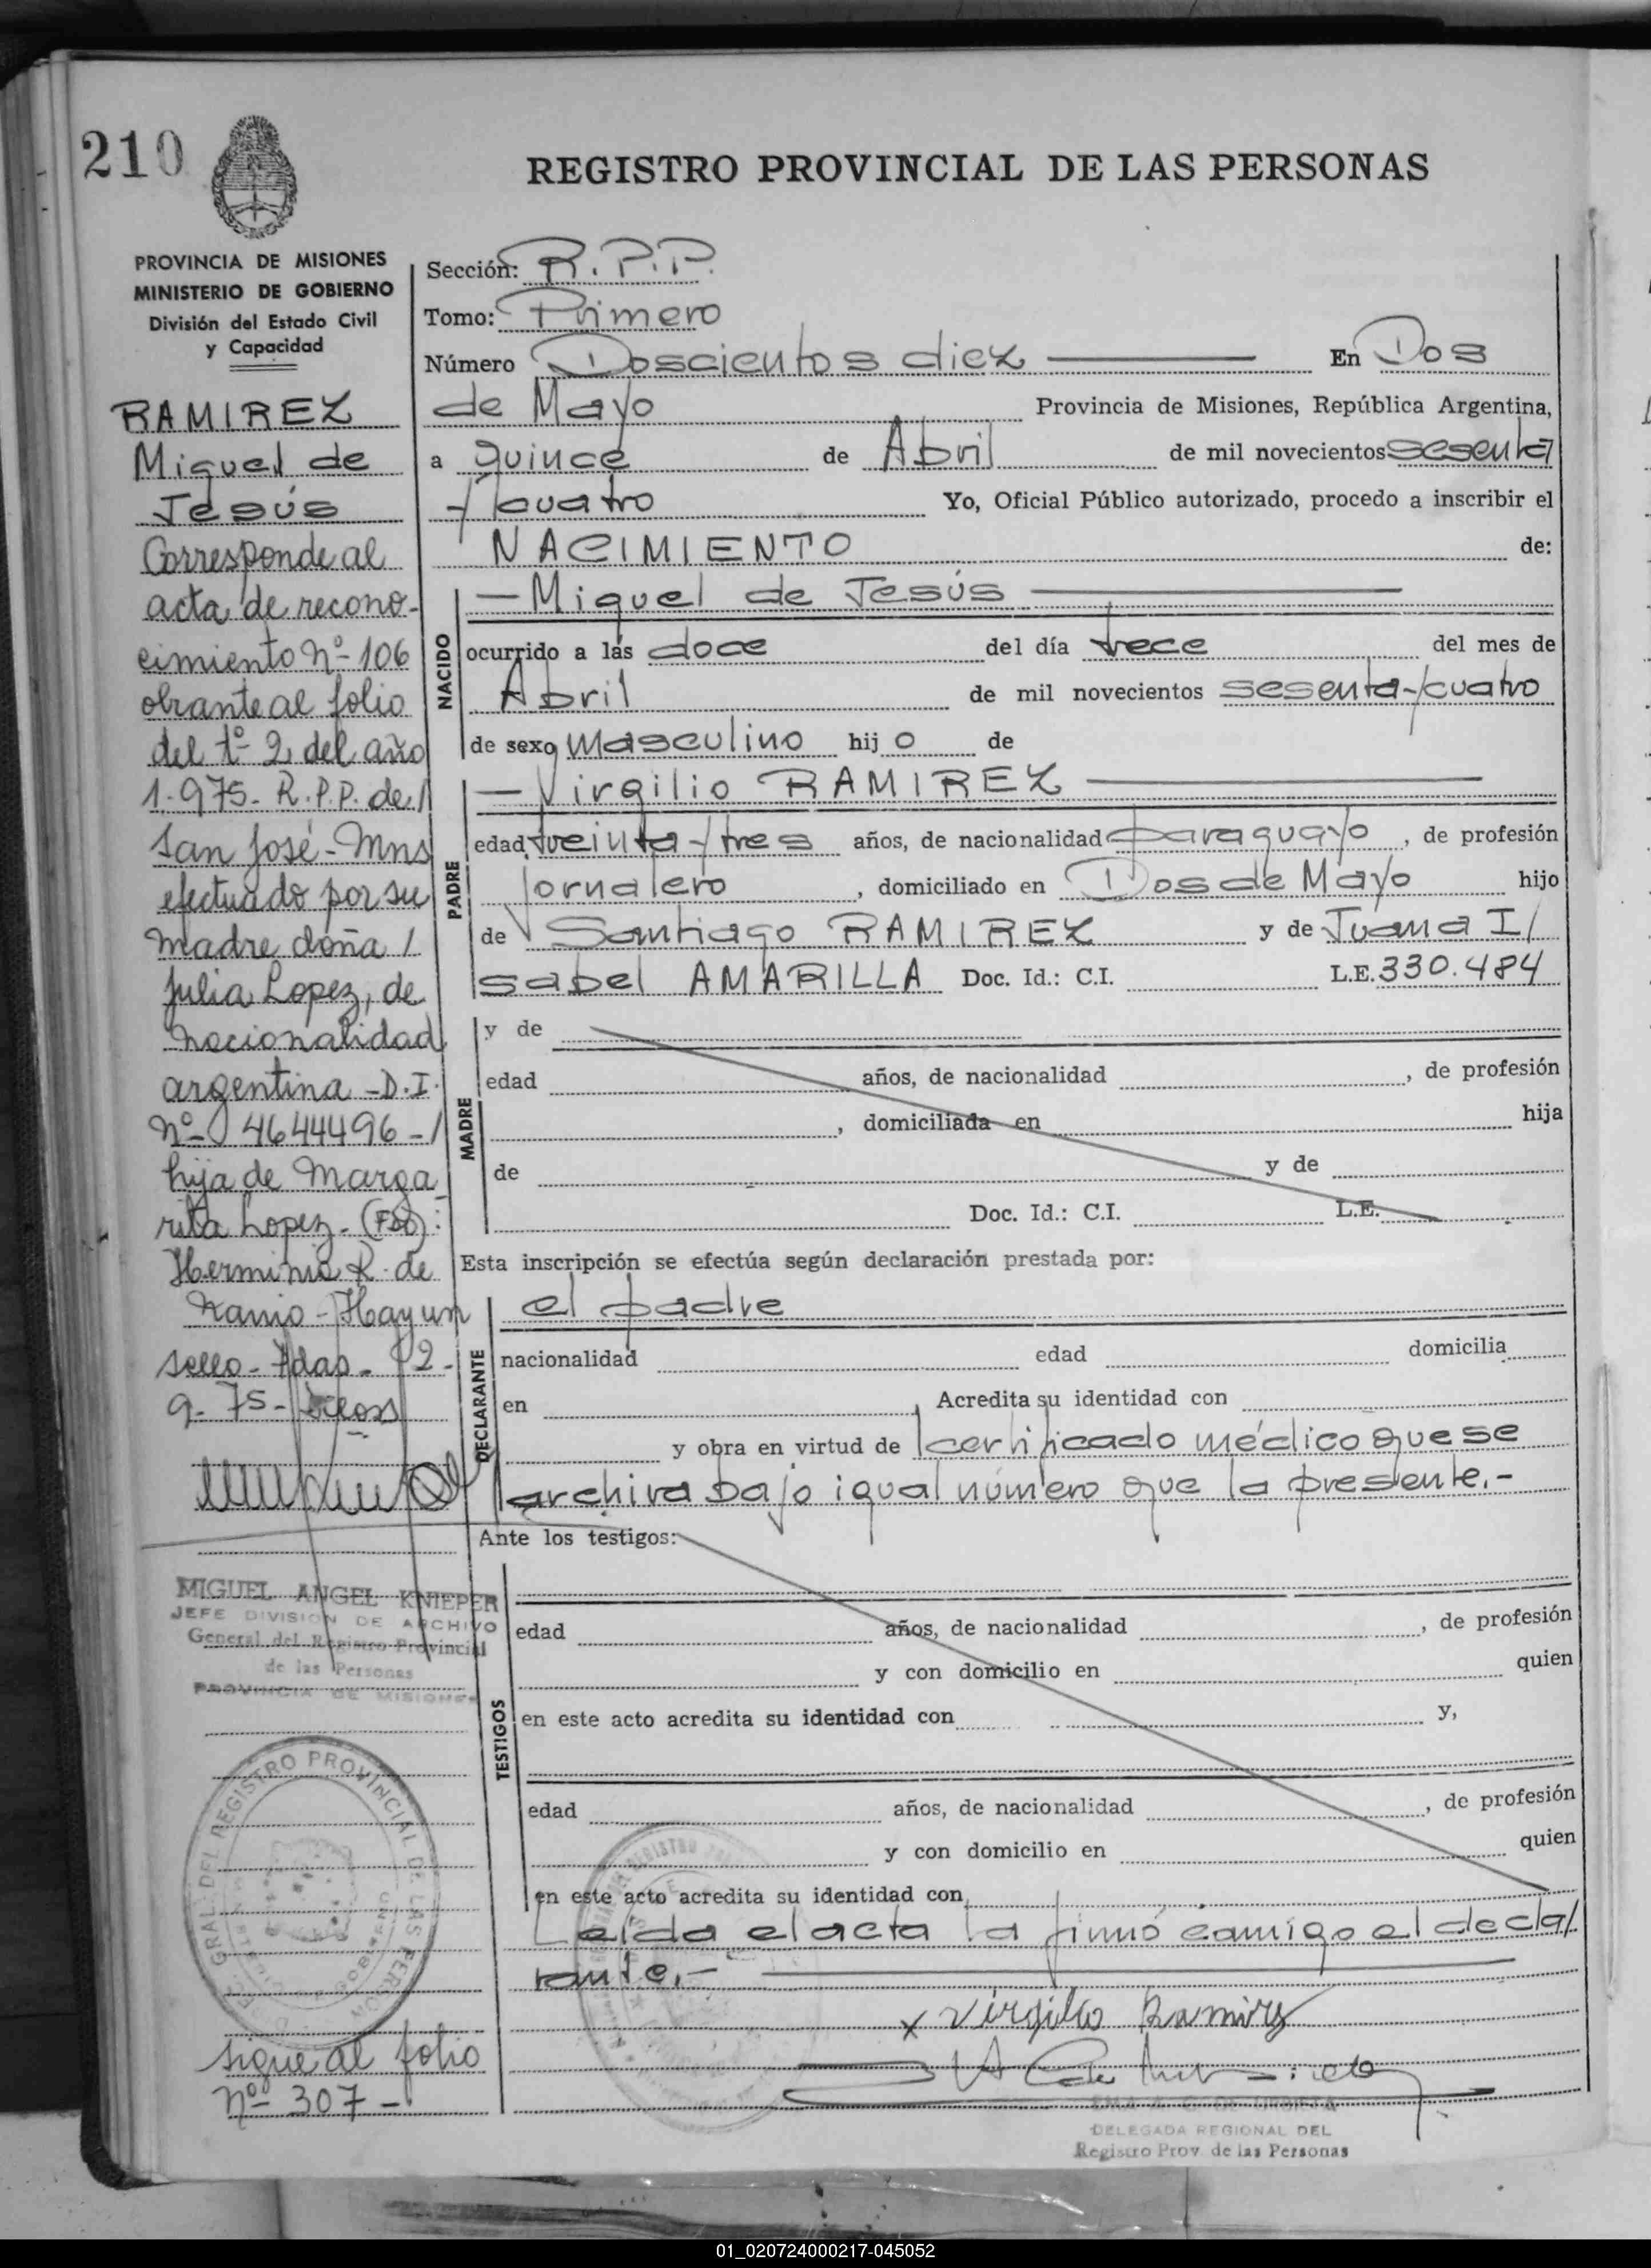 210
REGISTRO PROVINCIAL DE LAS PERSONAS
PROVINCIA DE MISIONES
MINISTERIO DE GOBIERNO
División del Estado Civil
y Capacidad
RAMIREZ
Miguel de
Jesús
Corresponde al
acta de recono-
cimiento Nº 106
obrante al folio
del tº 2 del año
1.975- R.P.P. de/
San José- Mns
efectuado por su
madre doña /
Julia Lopez, de
nacionalidad
argentina -D.I.
Nº 4644496-/
hija de Marga
rita Lopez-(Fdo):
Herminia R. de
- Hay un
sello- Pdas- 2-
9-75-
MIGUEL ANGEL KNIEPER
JEFE DIVISION DE ARCHIVO
General del Registro Provincial
de las Personas
PROVINCIA DE MISIONES
GRAL. DEL REGISTRO PROVINCIAL DE LAS PERSONAS
sigue al folio
Nº 307-
Sección: R.P.P.
Tomo: Primero
Número Doscientos diez En Dos
de Mayo Provincia de Misiones, República Argentina,
a quince de Abril de mil novecientos sesenta
y cuatro Yo, Oficial Público autorizado, procedo a inscribir el
NACIMIENTO de:
NACIDO
— Miguel de Jesús
ocurrido a las doce del día trece del mes de
Abril de mil novecientos sesenta y cuatro
de sexo masculino hij o de
PADRE
— Virgilio RAMIREZ
edad treinta y tres años, de nacionalidad paraguayo, de profesión
jornalero, domiciliado en Dos de Mayo hijo
de Santiago RAMIREZ y de Juana I/
sabel AMARILLA Doc. Id.: C.I. L.E. 330.484
MADRE
y de
edad años, de nacionalidad , de profesión
, domiciliada en hija
de y de
Doc. Id.: C.I. L.E.
Esta inscripción se efectúa según declaración prestada por:
DECLARANTE
el padre
nacionalidad edad domicilia
en , Acredita su identidad con
y obra en virtud de certificado médico que se
archiva bajo igual número que la presente.-
Ante los testigos:
TESTIGOS
edad años, de nacionalidad , de profesión
y con domicilio en quien
en este acto acredita su identidad con y,
edad años, de nacionalidad , de profesión
y con domicilio en quien
en este acto acredita su identidad con
Leída el acta la firmó conmigo el decla/
rante.-
x Virgilio Ramirez
DELEGADA REGIONAL DEL
Registro Prov. de las Personas
01_020724000217-045052